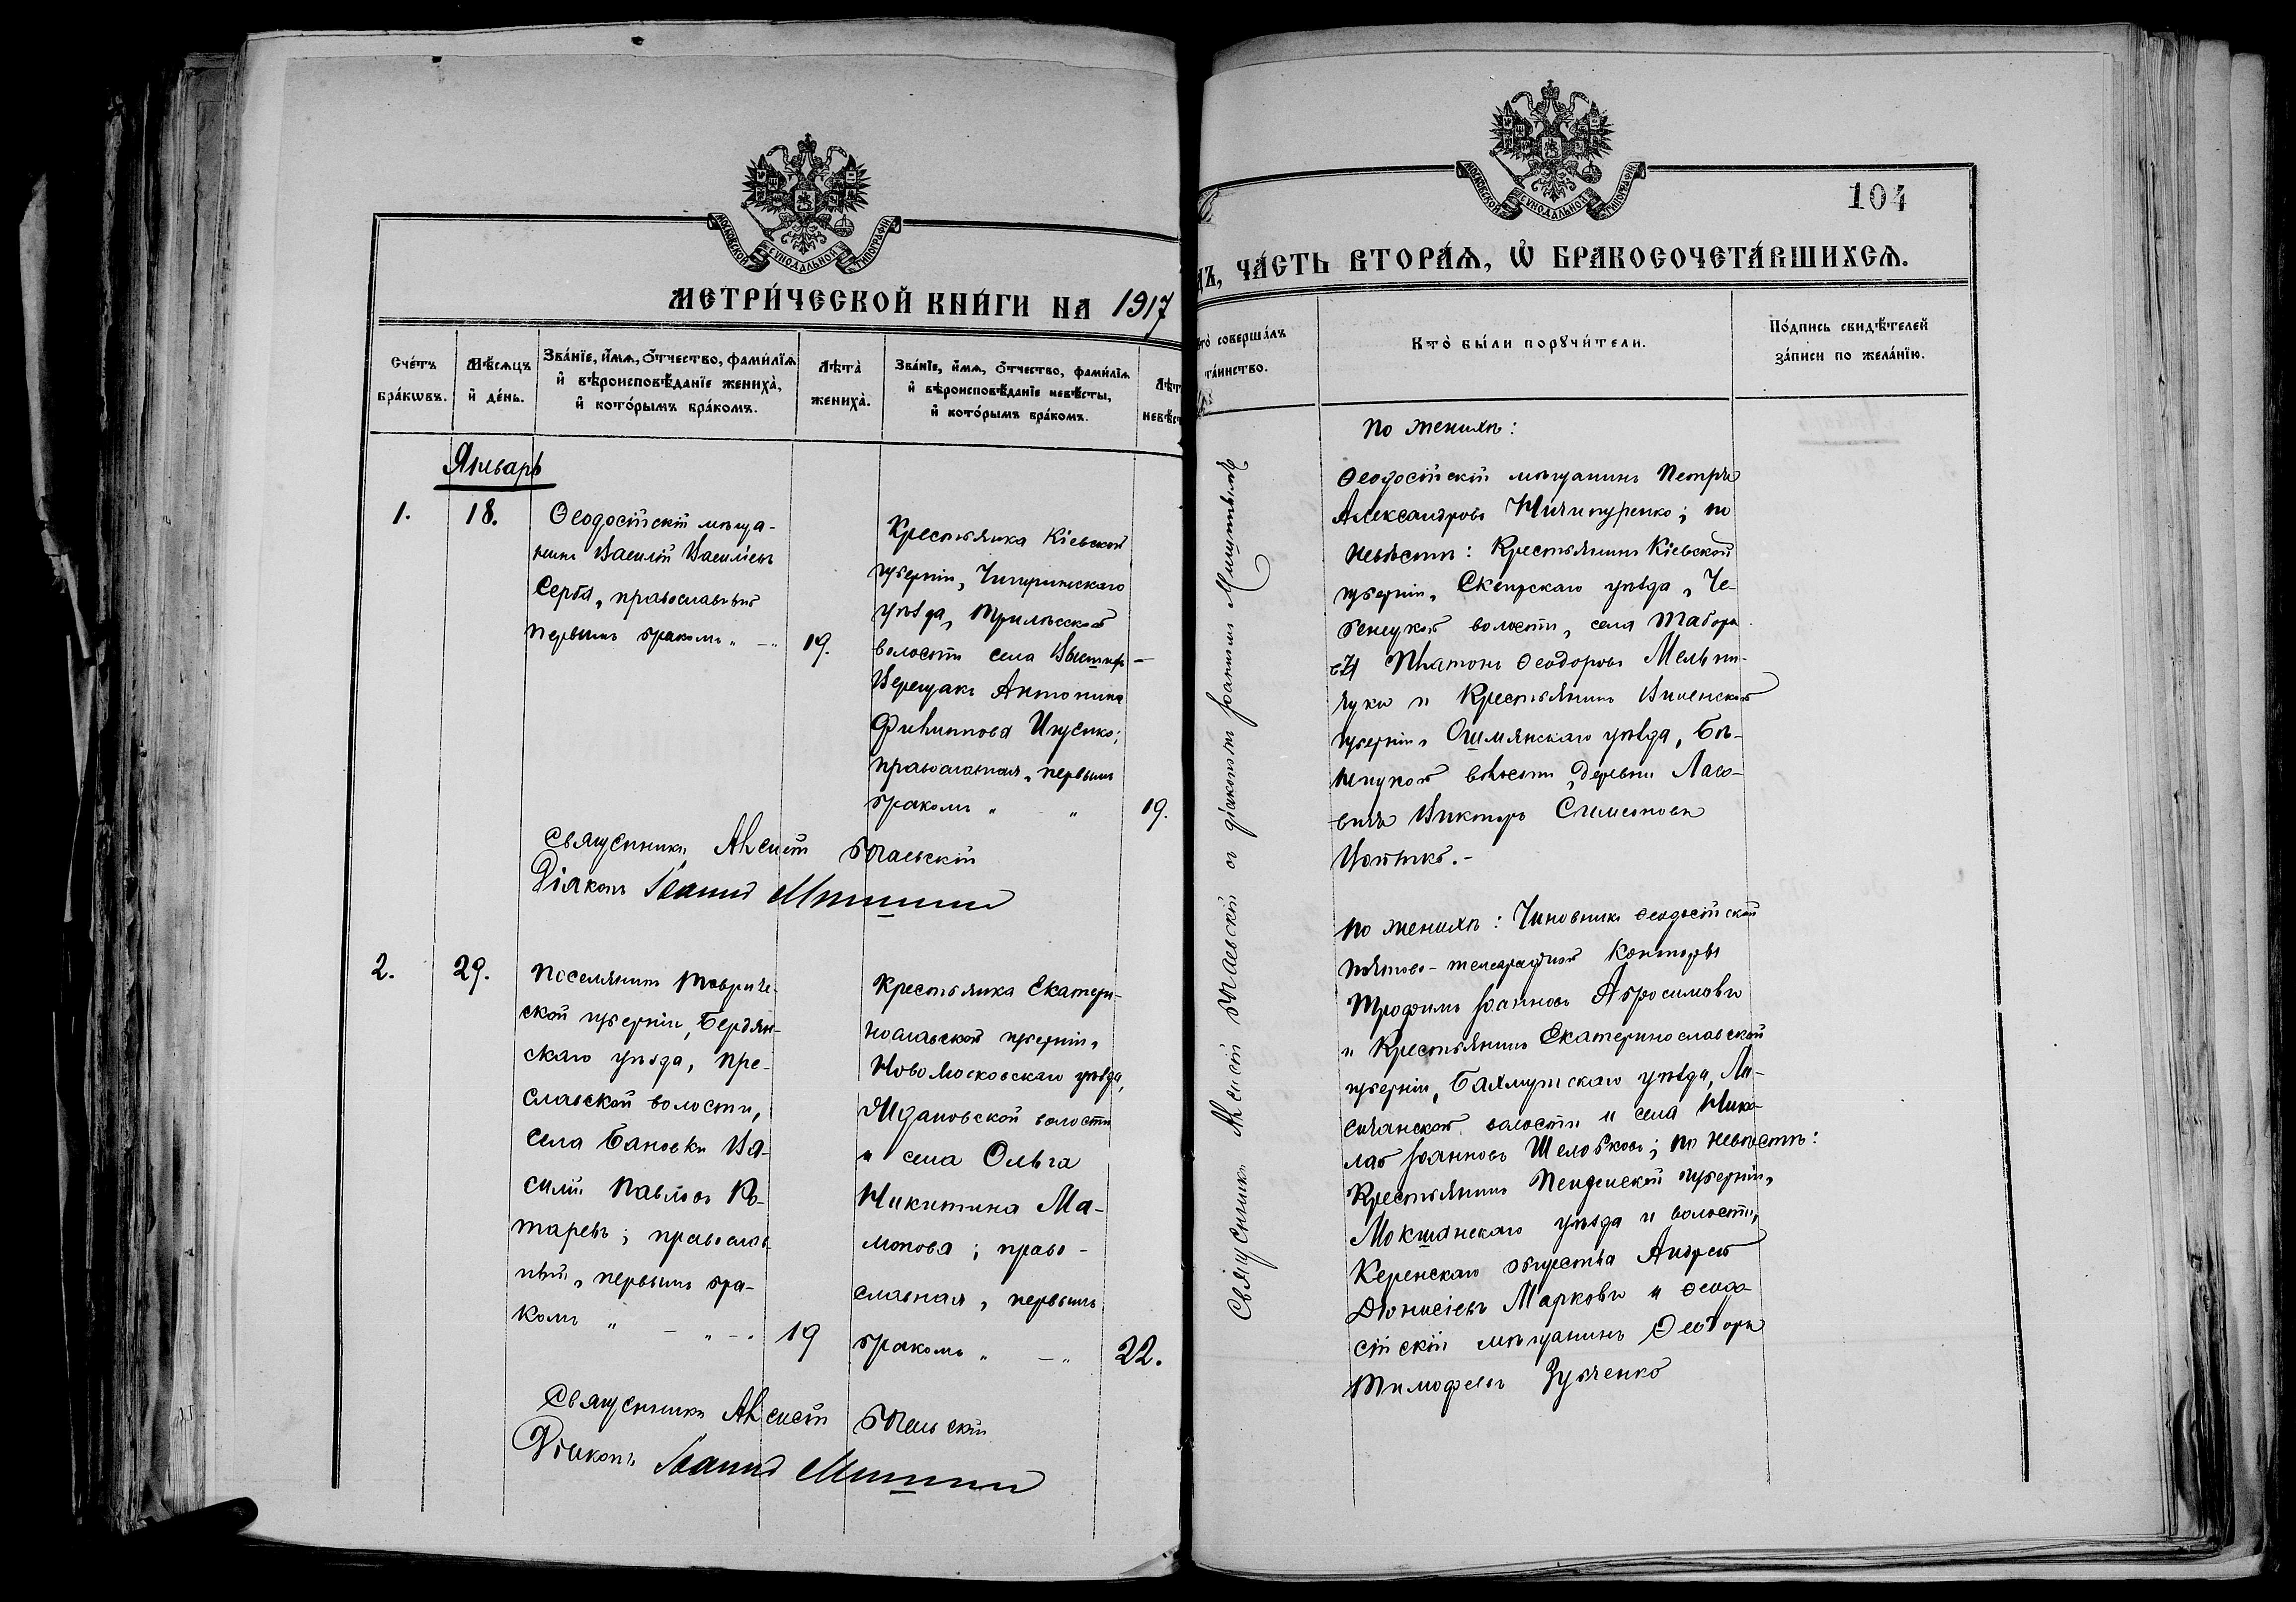 МОСКОВСКОЙ СѴНОДАЛЬНОЙ ТИПОГРАФІИ
МЕТРИ́ЧЕСКОЙ КНИ́ГИ НА 1917
Сче́тъ бра́кѡвъ.
Мѣ́сѧцъ и҆ де́нь.
Зва́нїе, и҆́мѧ, ѻ҆́тчество, фами́лїѧ
и҆ вѣроисповѣ́данїе жениха̀,
и҆ кото́рымъ бра́комъ.
Лѣта̀ жениха̀.
Зва́нїе, и҆́мѧ, ѻ҆́тчество, фами́лїѧ
и҆ вѣроисповѣ́данїе невѣ́сты,
и҆ кото́рымъ бра́комъ.
Лѣт
невѣст
Январь
1.
18.
Ѳеодосійскій мѣща-
нинъ Василій Васильевъ
Серба, православный
первымъ бракомъ „ — „
19.
Крестьянка Кіевской
губерніи, Чигиринскаго
уѣзда, Трилѣсской
волости села
Верещакъ Антонина
Филиппова Ищенко;
православная, первымъ
бракомъ „ „
19.
Священникъ Алексій
Діаконъ Іоаннъ Мишинъ
2.
29.
Поселянинъ Тавриче-
ской губерніи, Бердян-
скаго уѣзда, Пре-
славской волости,
села Бановки Ва-
силій Павловъ Ко-
таревъ; православ-
ный, первымъ бра-
комъ „ — „ —.
19
Крестьянка Екатери-
нославской губерніи,
Новомосковскаго уѣзда,
Ждановской волости
и села Ольга
Никитина Ма-
монова; право-
славная, первымъ
бракомъ „ — „
22.
Священникъ Алексій
Діаконъ Іоаннъ Мишинъ
МОСКОВСКОЙ СѴНОДАЛЬНОЙ ТИПОГРАФІИ
104
дъ, ЧА́СТЬ ВТОРА́Ѧ, Ѽ БРАКОСОЧЕТА́ВШИХСѦ.
Кто̀ соверша́лъ
та́инство.
Кто̀ бы́ли порꙋчи́тели.
По́дпись свидѣ́телей
за́писи по жела́нїю.
Священникъ Алексій съ діакономъ Іоанномъ Мишинымъ
По женихѣ:
Ѳеодосійскій мѣщанинъ Петръ
Александровъ Ничипуренко; по
невѣстѣ: Крестьянинъ Кіевской
губерніи, Сквирскаго уѣзда, Че-
бенецкой волости, села Табора
Платонъ Ѳеодоровъ Мельни-
чукъ и Крестьянинъ Виленской
губерніи, Ошмянскаго уѣзда, Бѣ-
ницкой волости, деревни Ласо-
вичъ Викторъ Симеоновъ
По женихѣ: Чиновникъ Ѳеодосійской
почтово-телеграфной конторы
Трофимъ Іоанновъ Абросимовъ
и Крестьянинъ Екатеринославской
губерніи, Бахмутскаго уѣзда, Ли-
сичанской волости и села Нико-
лай Іоанновъ Шелобковъ; по невѣстѣ:
Крестьянинъ Пензенской губерніи,
Мокшанскаго уѣзда и волости,
Керенскаго общества Андрей
Діонисіевъ Марковъ и Ѳеодо-
сійскій мѣщанинъ Ѳеодоръ
Тимофеевъ Зубченко